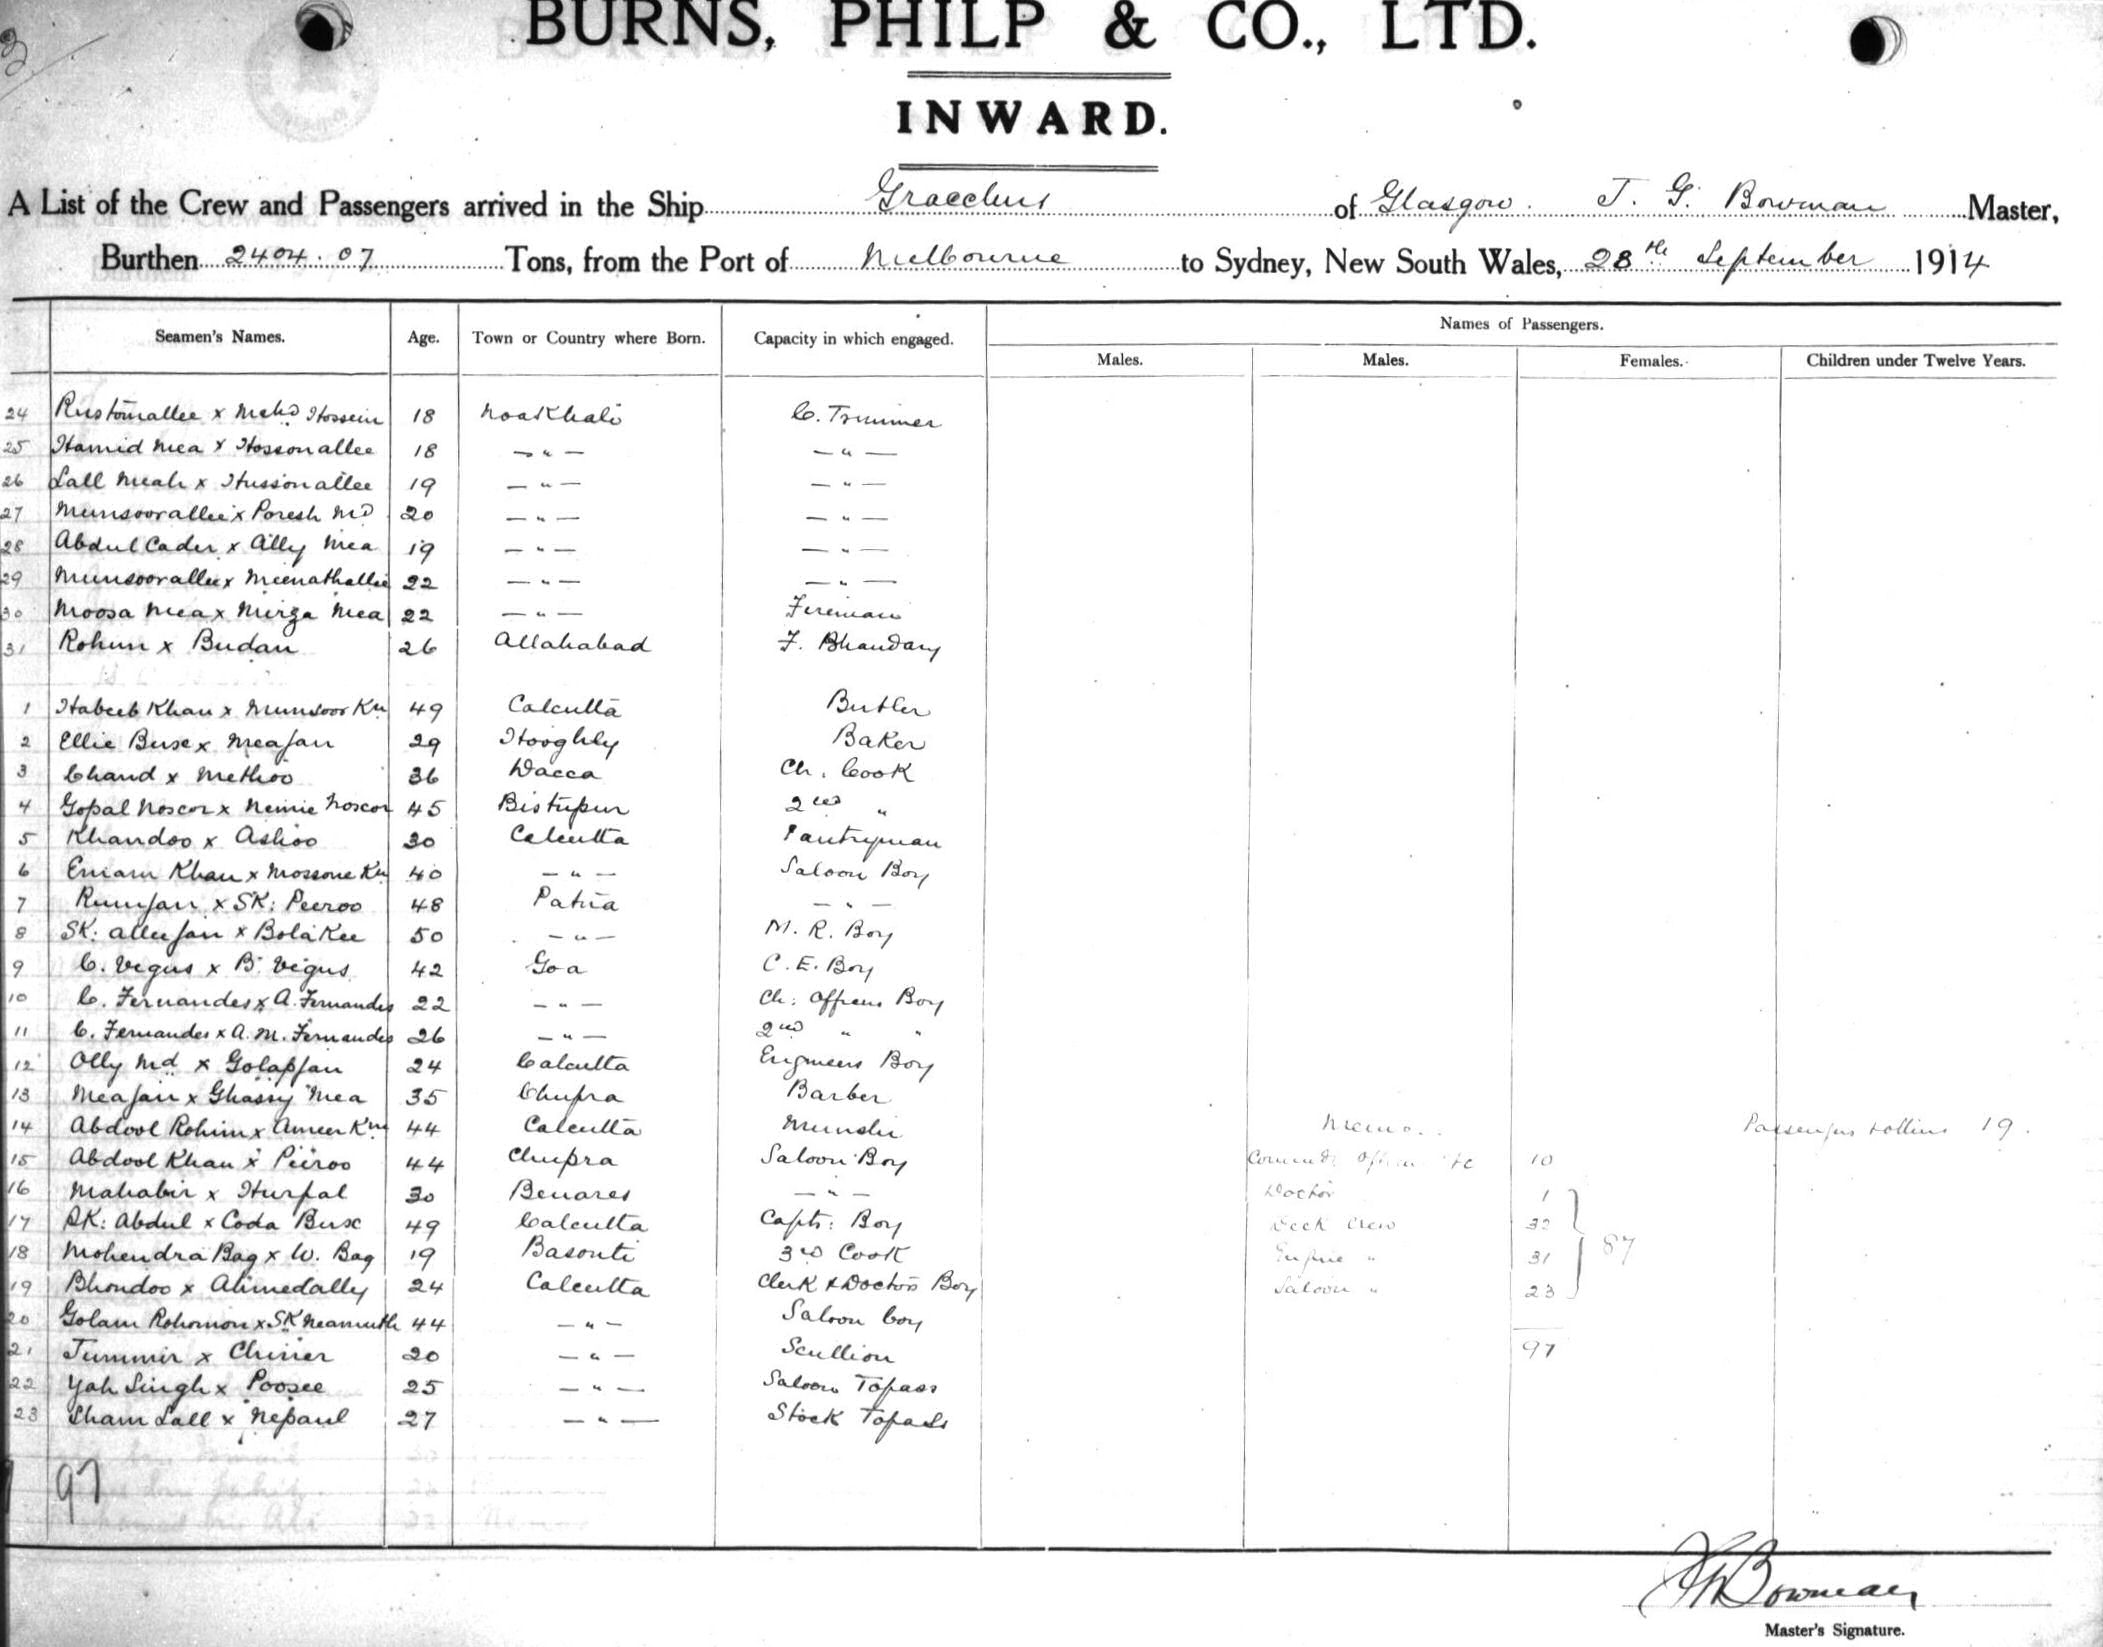 BURNS, PHILP & CO., LTD.
INWARD.
A List of the Crew and Passengers arrived in the Ship Gracchus of Glasgow. J. G. Bowman Master,
Burthen 2404.07 Tons, from the Port of Melbourne to Sydney, New South Wales, 28th September 1914
Names of Passengers.
Seamen's Names. Age. Town or Country where Born. Capacity in which engaged.
Males. Males. Females. Children under Twelve Years.
24 Rustomallee x Mahd Hossein 18 Noakhali C. Trimmer
25 Hamid Mea x Hossonallee 18 — " — — " —
26 Lall Meah x Hussonallee 19 — " — — " —
27 Munsoorallee x Poresh Md 20 — " — — " —
28 Abdul Cader x Ally Mea 19 — " — — " —
29 Munsoorallee x Meenathallie 22 — " — — " —
30 Moosa Mea x Mirza Mea 22 — " — Fireman
31 Rohim x Budan 26 Allahabad F. Bhandary
1 Habeeb Khan x Munsoor Kn 49 Calcutta Butler
2 Ellie Bux x Meajan 29 Hooghly Baker
3 Chand x Methoo 36 Dacca Ch. Cook
4 Gopal Noscor x Nemie Noscor 45 Bistupur 2nd "
5 Khandoo x Ashoo 30 Calcutta Pantryman
6 Emam Khan x Mossone Kn 40 — " — Saloon Boy
7 Rumjan x SK: Peeroo 48 Patna — " —
8 SK: Alleejan x Bolakee 50 — " — M. R. Boy
9 C. Vegus x B. Vegus 42 Goa C. E. Boy
10 C. Fernandes x A. Fernandes 22 — " — Ch: Officers Boy
11 C. Fernandes x A. M. Fernandes 26 — " — 2nd " "
12 Olly Md x Golapjan 24 Calcutta Engineers Boy
13 Meajan x Ghassy Mea 35 Chupra Barber
14 Abdool Rohim x Ameer Kn 44 Calcutta Munshi Memo. Passengers 19.
15 Abdool Khan x Peeroo 44 Chupra Saloon Boy 10
16 Mahabir x Hurpal 30 Benares — " — Doctor 1
17 SK: Abdul x Coda Bux 49 Calcutta Capts: Boy Deck Crew 32
18 Mohendra Bag x W. Bag 19 Basonti 3rd Cook Engine " 31 87
19 Bhondoo x Ahmedally 24 Calcutta Clerk & Doctors Boy Saloon " 23
20 Golam Rohomon x SK Neamuth 44 — " — Saloon boy
21 Jummir x Chinier 20 — " — Scullion 97
22 Yah Singh x Poosee 25 — " — Saloon Topass
23 Sham Lall x Nepaul 27 — " — Stock Topass
97
Bowman
Master's Signature.